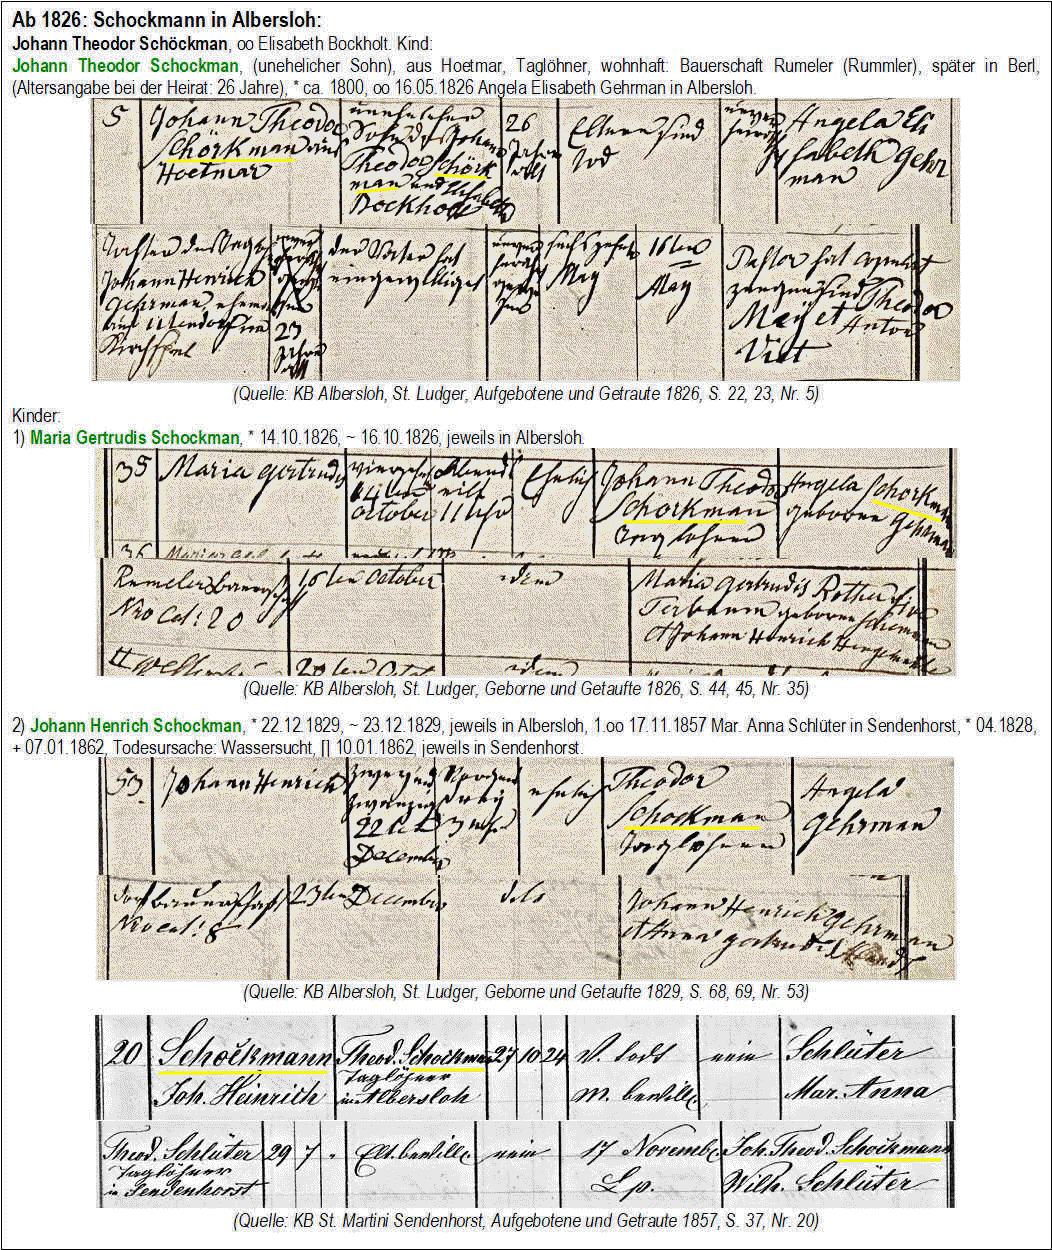 Ab 1826: Schockmann in Albersloh:
Johann Theodor Schöckman, oo Elisabeth Bockholt. Kind:
Johann Theodor Schockman, (unehelicher Sohn), aus Hoetmar, Taglöhner, wohnhaft: Bauerschaft Rumeler (Rummler), später in Berl,
(Altersangabe bei der Heirat: 26 Jahre), * ca. 1800, oo 16.05.1826 Angela Elisabeth Gehrman in Albersloh.
5 Johann Theodor unehelicher 26 Eltern sind Angela Eli
Schöckman aus Sohn des Johann Jahre Tod sabeth Gehr
Hoetmar Theodor Schöck alt man
man und Elisabeth
Bockholt
Tochter des der Vater hat sechszehnte 16ten Pastor hat
Johann Henrich eingewilliget May May zeugen sind Theodor
Gehrman Meÿ et Anton
23 Viet
Kirchspel Jahre alt
(Quelle: KB Albersloh, St. Ludger, Aufgebotene und Getraute 1826, S. 22, 23, Nr. 5)
Kinder:
1) Maria Gertrudis Schockman, * 14.10.1826, ~ 16.10.1826, jeweils in Albersloh.
35 Maria gertrudis vierzehn Abend Ehelich Johann Theodor Angela Schockman
14ten eilf Schockman geborene Gehrman
October 11 Uhr Taglöhner
36
Rumeler Bauerschaft 16ten October idem Maria Gertrudis Rother
Nro Cat: 20 geborene
et Johann Henrich
20ten Octob idem
(Quelle: KB Albersloh, St. Ludger, Geborne und Getaufte 1826, S. 44, 45, Nr. 35)
2) Johann Henrich Schockman, * 22.12.1829, ~ 23.12.1829, jeweils in Albersloh, 1.oo 17.11.1857 Mar. Anna Schlüter in Sendenhorst, * 04.1828,
+ 07.01.1862, Todesursache: Wassersucht, [] 10.01.1862, jeweils in Sendenhorst.
53 Johann Henrich zwey und Morgens ehelich Theodor Angela
zwanzig drey Schockman Gehrman
22ten 3 Uhr Taglöhner
December
dorf bauerschaft 23ten December Johann Henrich Gehrman
Nro cat: 8 et Anna gertrud
(Quelle: KB Albersloh, St. Ludger, Geborne und Getaufte 1829, S. 68, 69, Nr. 53)
20 Schockmann Theod. Schockman 27 10 24 V. todt nein Schlüter
Joh. Heinrich Taglöhner in Albersloh M. bewill. Mar. Anna
Theod. Schlüter 29 7 " Elt. bewill. nein 17 Novemb. Joh. Theod. Schockmann
Taglöhner in Sendenhorst L.p. Wilh. Schlüter
(Quelle: KB St. Martini Sendenhorst, Aufgebotene und Getraute 1857, S. 37, Nr. 20)